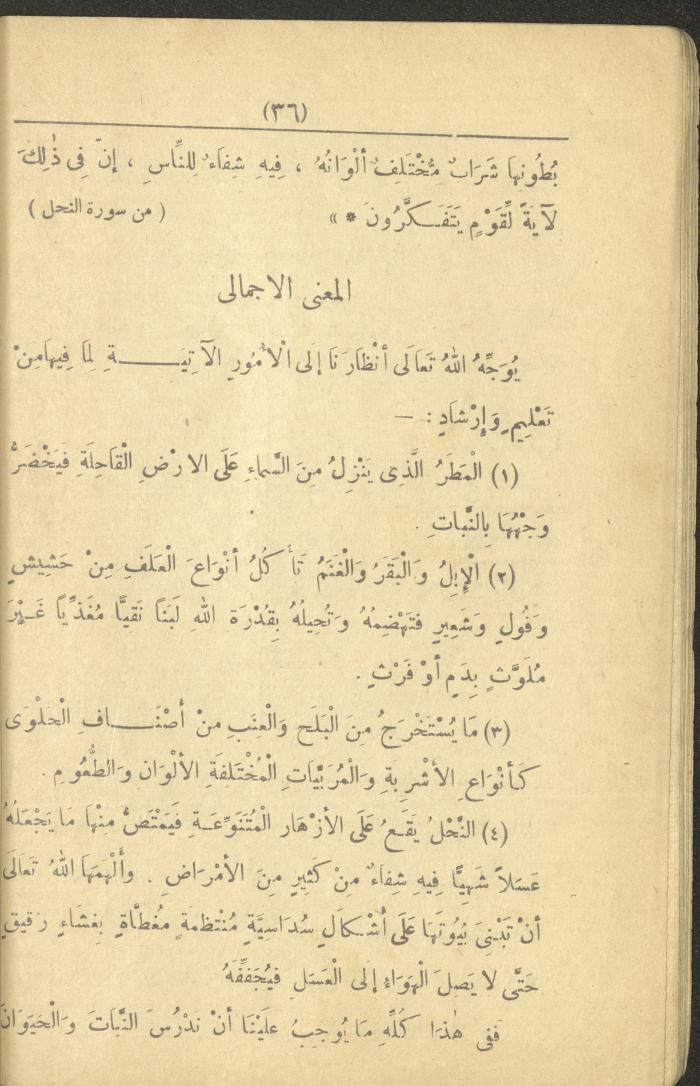 (٣٦)
بُطُونِها شَرَابٌ مُّخْتَلِفٌ أَلْوَانُهُ ، فِيهِ شِفَاءٌ لِلنَّاسِ ، إنّ فِى ذٰلِكَ
لَآيَةً لِّقَوْمٍ يَتَفَـكَّرُونَ * » ( من سورة النحل )
المعنى الاجمالى
يُوَجِّهُ اللهُ تَعَالَى أنْظَارَنَا إلَى الْأمُورِ الآتِيَـــــةِ لِمَا فِيهَا مِنْ
تَعْلِيمٍ وَإرْشَادٍ : —
(١) الْمَطَرُ الَّذِى يَنْزِلُ مِنَ السَّماءِ عَلَى الارْضِ الْقَاحِلَةِ فَيَخْضَرُّ
وَجْهُهَا بِالنَّبَاتِ .
(٢) الْإبِلُ وَالْبَقَرُ وَالْغَنَمُ تَأ كُلُ أنْوَاعَ الْعَلَفِ مِنْ حَشِيشٍ
وَفُولٍ وَشَعِيرٍ فَتَهْضِمُهُ وَتُحِيلُهُ بِقُدْرَةِ اللهِ لَبَنًا نَقِيًّا مُغَذِّيًا غَـيْرَ
مُلَوَّثٍ بِدَمٍ أوْ فَرْثٍ .
(٣) مَا يُسْتَخْرَجُ مِنَ الْبَلَحِ وَالْعِنَبِ مِنْ أصْنَـــافِ الْحَلْوَى
كَأنْوَاعِ الأشْرِبَةِ وَالْمُرَبَّيَاتِ الْمُخْتَلِفَةِ الألْوَانِ وَالطُّعُومِ .
(٤) النَّحْلُ يَقَـعُ عَلَى الأزْهَارِ الْمُتَنَوِّعَـةِ فَيَمْتَصُّ مِنْهَا مَا يَجْعَلُهُ
عَسَلاً شَهِيًّا فِيهِ شِفَاءٌ مِنْ كَثِيرٍ مِنَ الأمْرَاضِ . وَألْهَمَهَا اللهُ تَعَالَى
أنْ تَبْنِىَ بُيُوتَهَا عَلَى أشْـكَالٍ سُدَاسِيَّةٍ مُنْتَظِمَةٍ مُغَطَّاةٍ بِغِشَاءٍ رَقِيقٍ
حَتَّى لا يَصِلَ الْهَوَاءُ إلَى الْعَسَلِ فَيُجَفِّفَهُ
فَفِى هٰذَا كُلِّهِ مَا يُوجِبُ عَلَيْنَا أنْ نَدْرُسَ النَّبَاتَ وَالْحَيَوَانَ